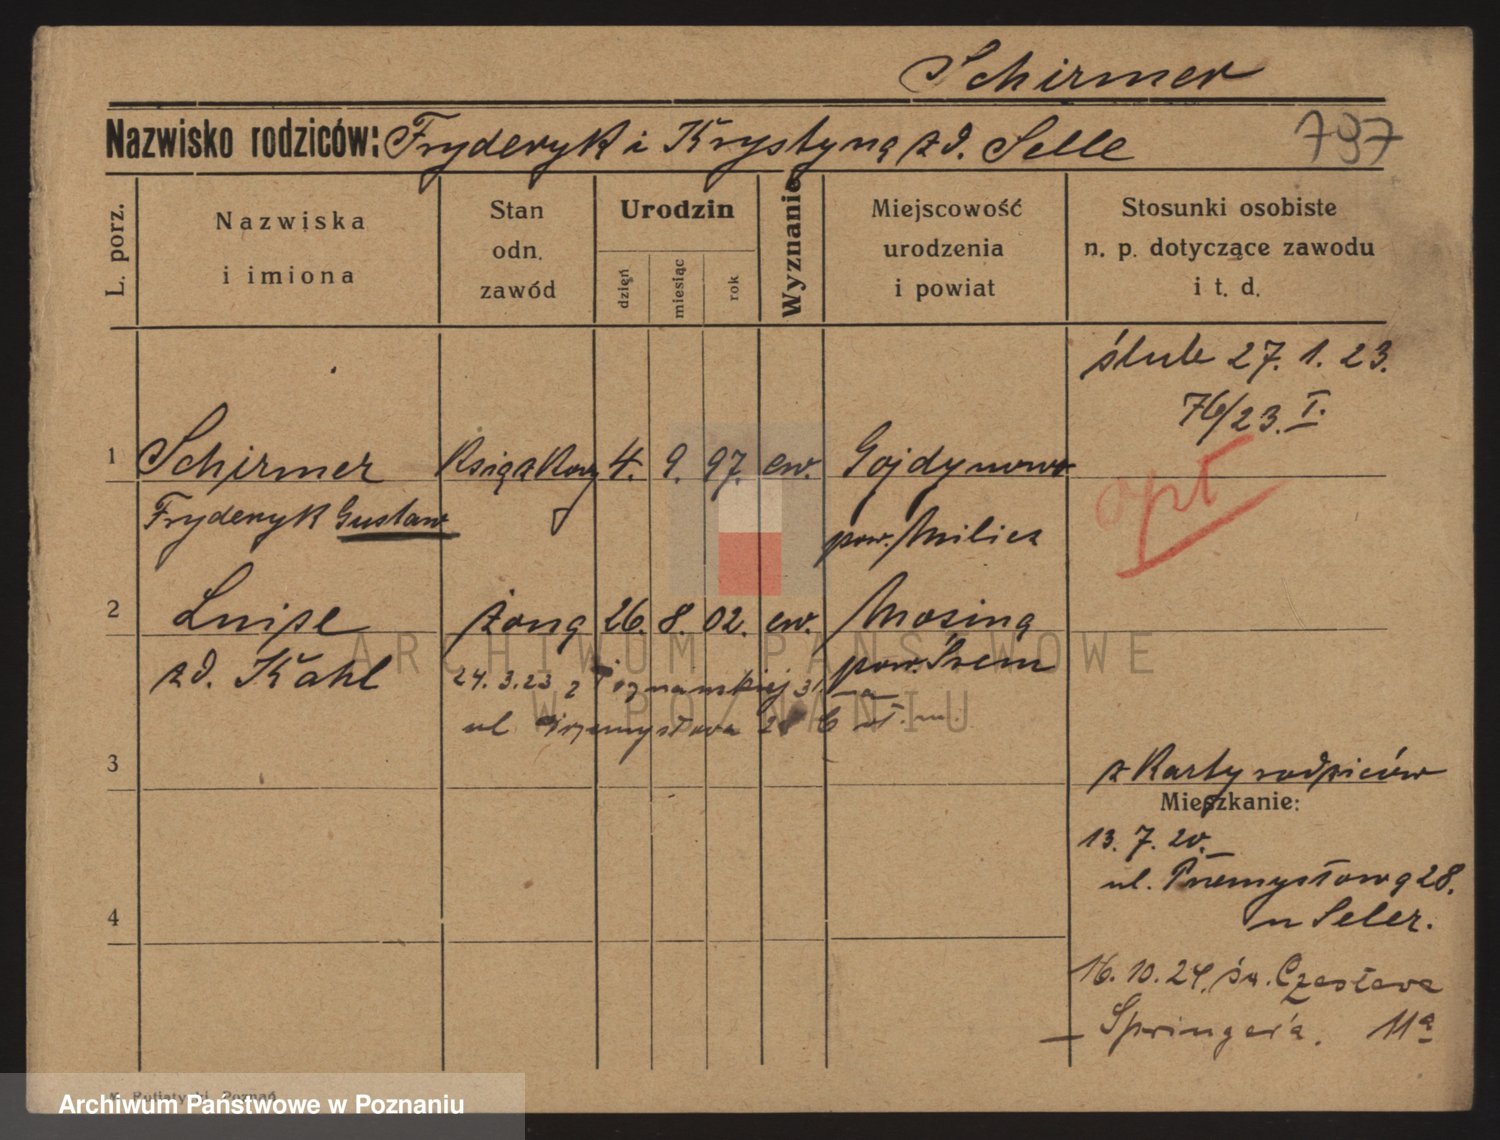 Schirmer
Nazwisko rodziców: Fryderyk i Krystyną zd. Selle
797
L. porz.
Nazwiska
i imiona
Stan
odn.
zawód
Urodzin
dzięń
miesiąc
rok
Wyznanie
Miejscowość
urodzenia
i powiat
Stosunki osobiste
n. p. dotyczące zawodu
i t. d.
ślub 27. 1. 23.
76/23. I.
1 Schirmer Książkowy 4. 9. 97. ew. Gojdynowo
opt
Fryderyk Gustaw pow. Milicz
2 Luise żona 26. 8. 02. ew. Mosina
zd. Kahl pow. Śrem
24. 3. 23 z Poznańskiej 31
ul Przemysłowa
3
z Karty rodziców
Mieszkanie:
13. 7. 20.
ul. Przemysłowa 28.
4
u Seler.
16. 10. 24. św. Czesława
Springer'a. 11a
ARCHIWUM PAŃSTWOWE
W POZNANIU
Putiatycki, Poznań
Archiwum Państwowe w Poznaniu